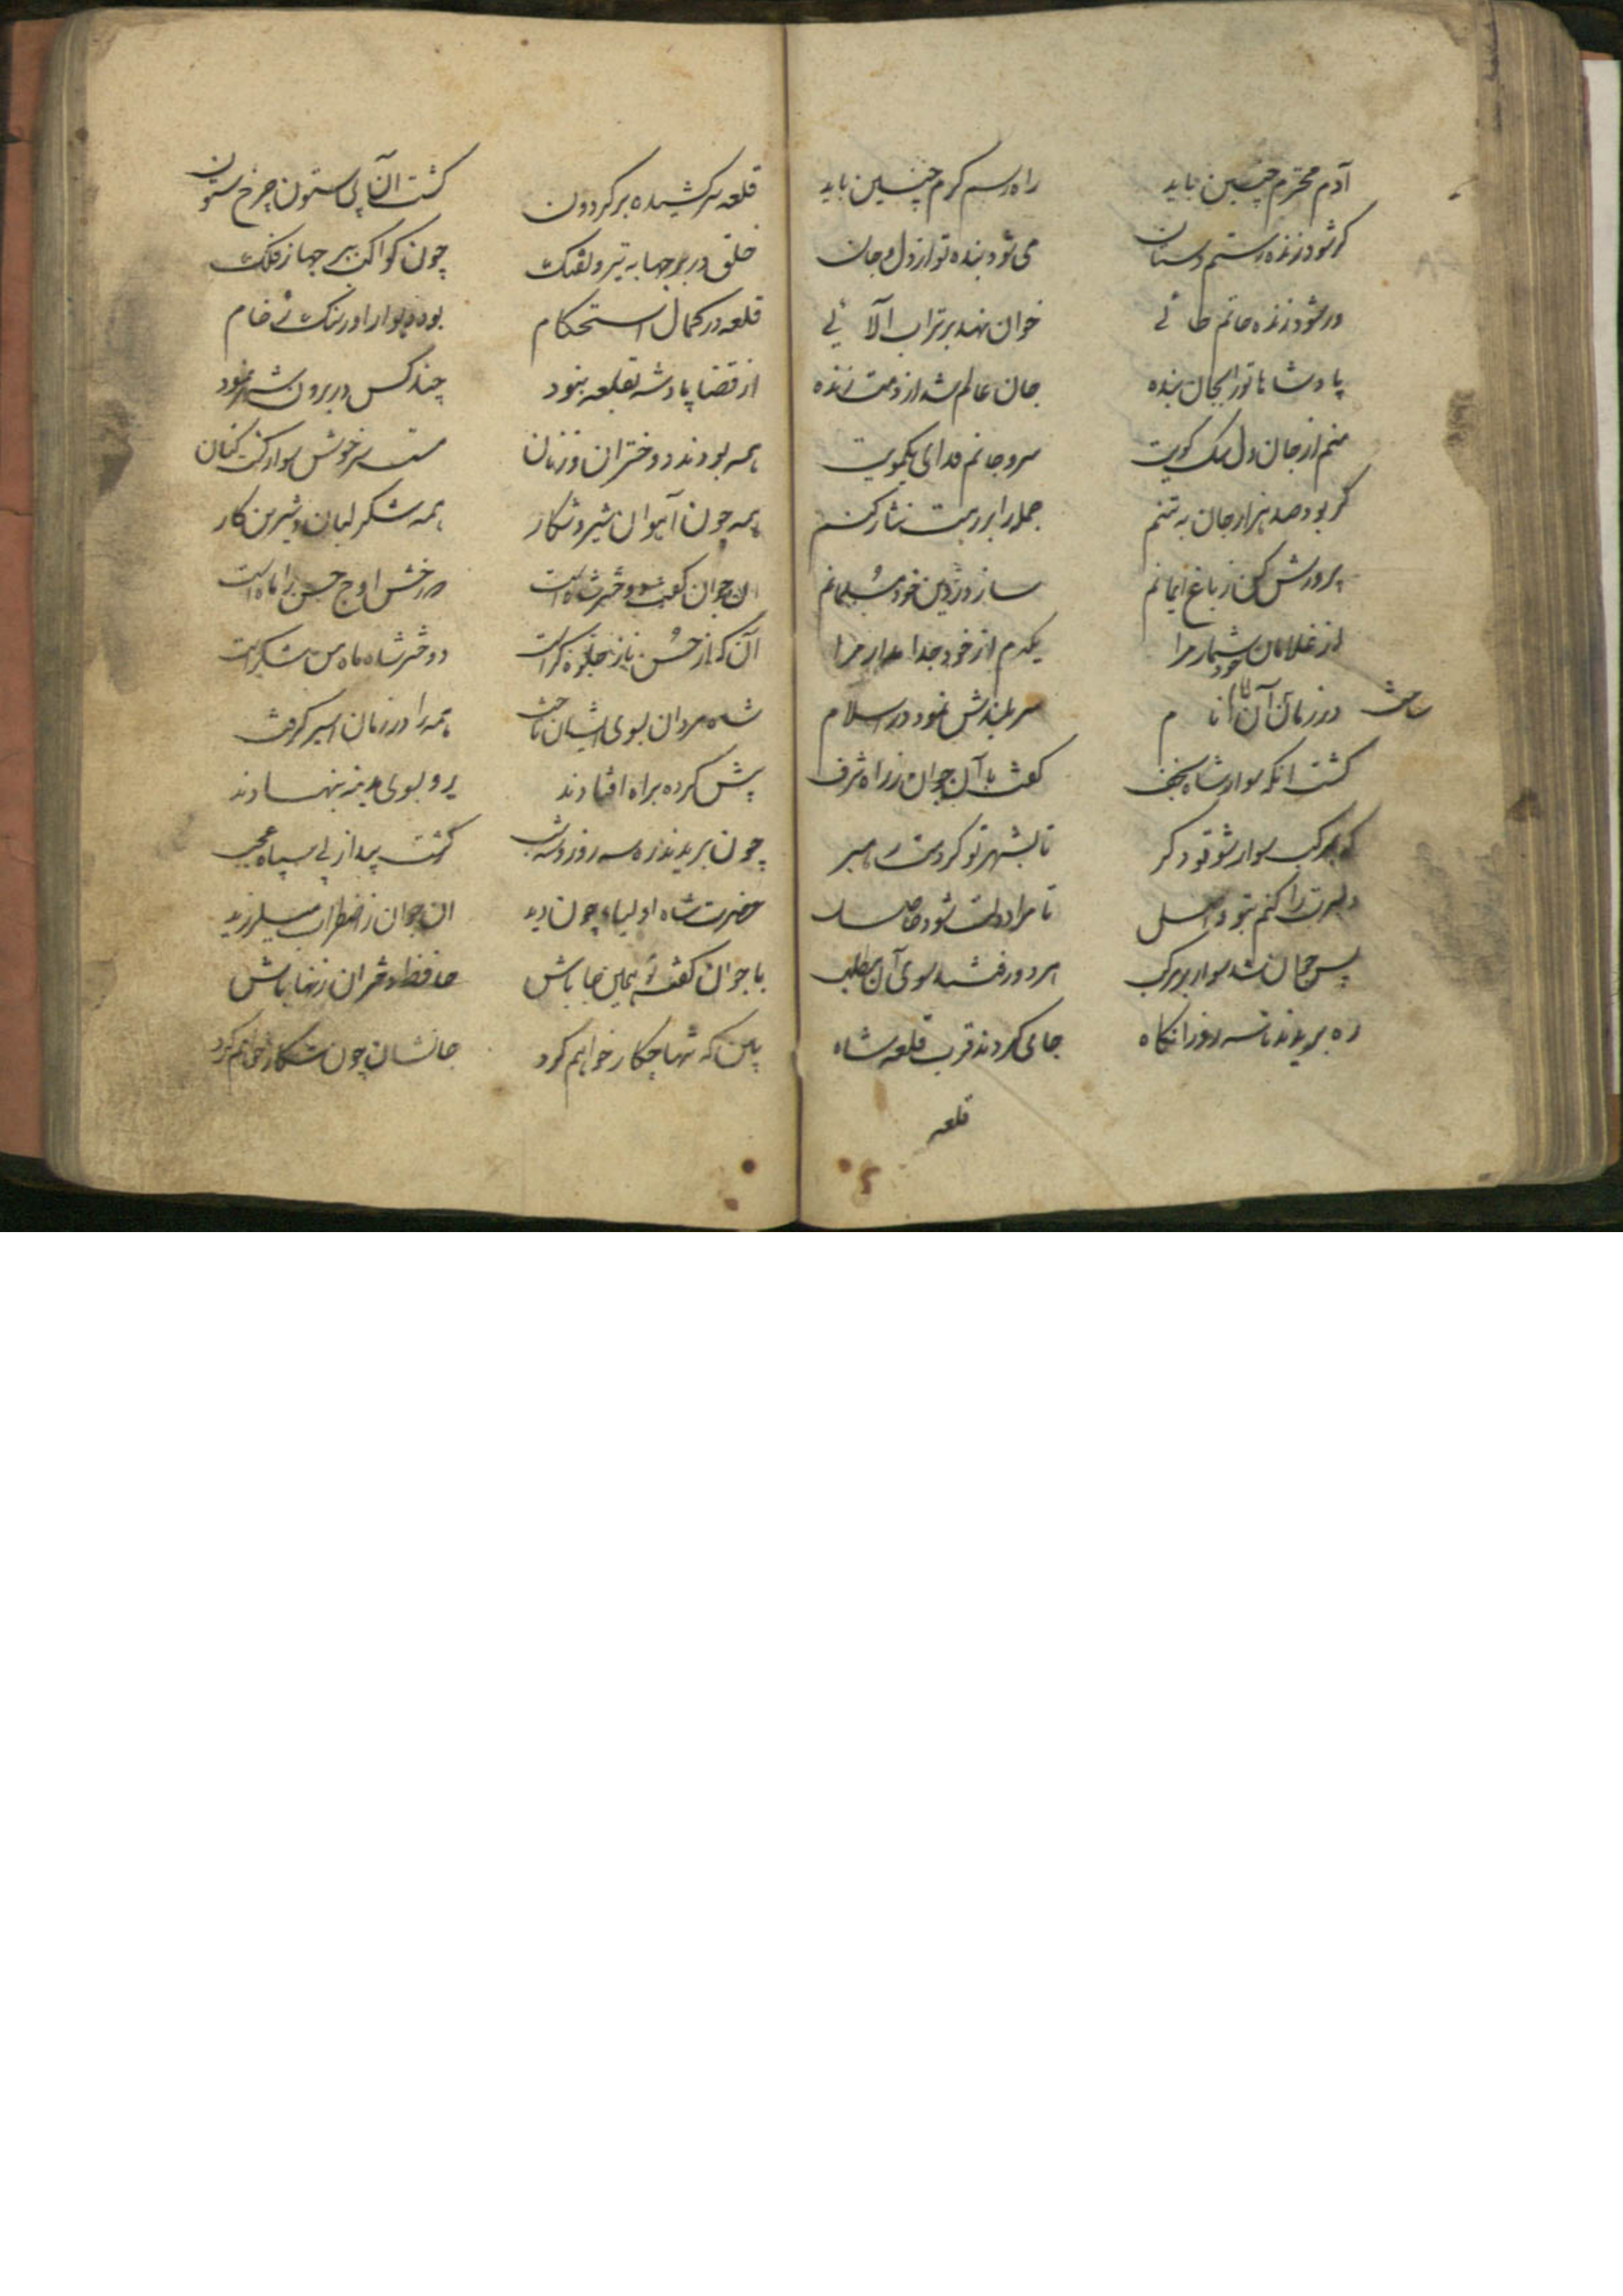 آدم محترم چنین باید راه رسم کرم چنین باید
کر شود زنده رستم دستان می شود بنده تو از دل و جان
ور شود زنده حاتم طائی خوان نهد بر تراب آلائی
پادشاها ترا بجان بنده جان عالم شد از دمت زنده
منم از جان و دل سک کویت سر و جانم فدای یکمویت
کر بود صد هزار جان به تنم جمله را بر رهت نثار کنم
پرورش کن ز باغ ایمانم ساز در دین خود مسلمانم
از غلامان خود شمار مرا یکدم از خود جدا مدار مرا
ساخت در زمان آن امام انام سر بلندش نمود در اسلام
کشت انکه سوار شاه نجف کفت با آن جوان ز راه شرف
که بمرکب سوار شو تو دکر تا بشهر تو کردمت رهبر
دلبرت را کنم بتو واصل تا مراد دلت شود حاصل
پس جوان شد سوار بر مرکب هر دو رفتند سوی آن مطلب
ره بریدند تا سه روز انکاه جای کردند قرب قلعه شاه
قلعه
قلعه سر کشیده بر کردون کشت آن بی ستون چرخ ستون
خلق در برجها به تیر و تفنک چون کواکب ببرجها ز فلک
قلعه در کمال استحکام بود دیوار او ز سنک رخام
از قضا پادشه بقلعه نبود چند کس در برون شهر نمود
همه بودند دختران و زنان مست سرخوش سوار کشت کنان
همه چون آهوان شیر و شکار همه شکر لبان و شیرین کار
آن جوان کفت دختر شاه است مه رخش اوج حسن را ماه است
آن که از حسن ناز جلوه کر است دختر شاه ماه من شکر است
شاه مردان بسوی ایشان تاخت همه را در زمان اسیر کرفت
پیش کرده براه افتادند رو بسوی مدینه بنهادند
چون بریدند ره سه روز و سه شب کشت پیدا ز پی سپاه عجب
حضرت شاه اولیا چون دید ان جوان ز اضطراب میلرزید
با جوان کفت همین جا باش حافظ دختران زنها باش
بین که تنها چکار خواهم کرد جانشان چون شکار خواهم کرد